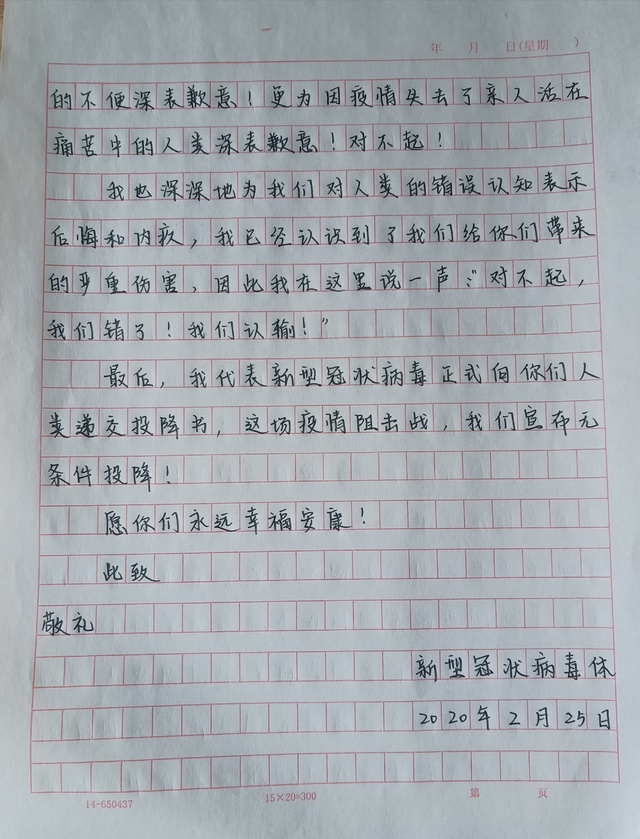 年 月 日(星期 )
的不便深表歉意!更为因疫情失去了亲人活在
痛苦中的人类深表歉意!对不起!
我也深深地为我们对人类的错误认知表示
后悔和内疚,我已经认识到了我们给你们带来
的严重伤害,因此我在这里说一声:“对不起,
我们错了!我们认输!”
最后,我代表新型冠状病毒正式向你们人
类递交投降书,这场疫情阻击战,我们宣布无
条件投降!
愿你们永远幸福安康!
此致
敬礼
新型冠状病毒体
2020年2月25日
14-650437 15×20=300 第 页